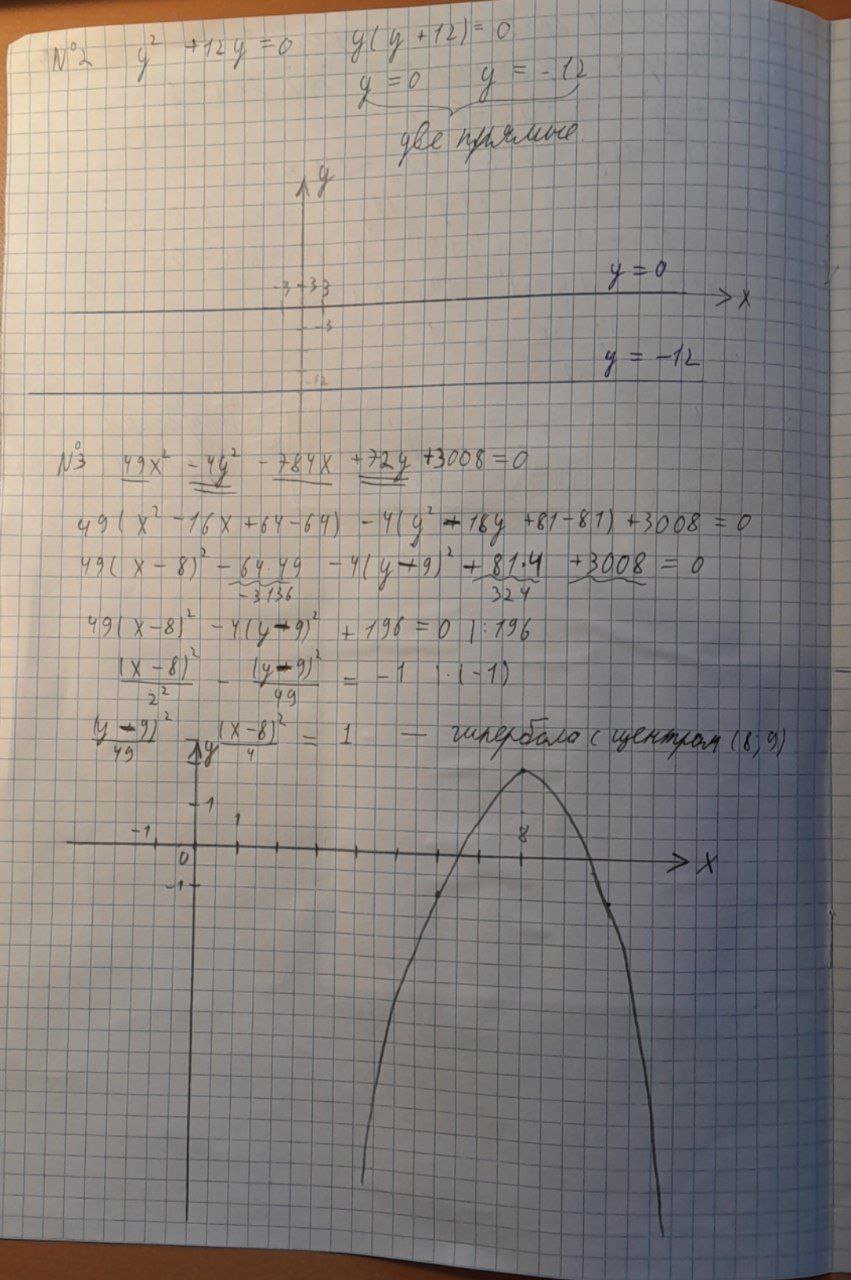 №2 y² +12y = 0 y(y+12) = 0
y = 0 y = -12
две прямые
y
y = 0
-3 3 3
x
-3
y = -12
-12
№3 49x² - 4y² - 784x + 72y + 3008 = 0
49(x² - 16x + 64 - 64) - 4(y² - 18y + 81 - 81) + 3008 = 0
49(x - 8)² - 64·49 - 4(y - 9)² + 81·4 + 3008 = 0
-3136 324
49(x - 8)² - 4(y - 9)² + 196 = 0 |:196
(x - 8)²/2² - (y - 9)²/49 = -1 |·(-1)
(y - 9)²/49 (x - 8)²/4 = 1 — гипербола с центром (8; 9)
y
1
-1 1 8
0 x
-1